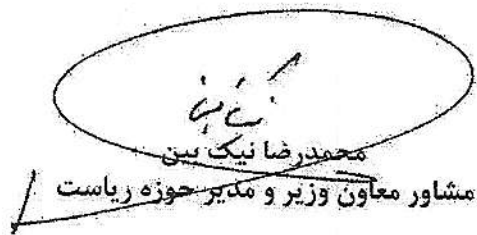 محمدرضا نیک بین
مشاور معاون وزیر و مدیر حوزه ریاست